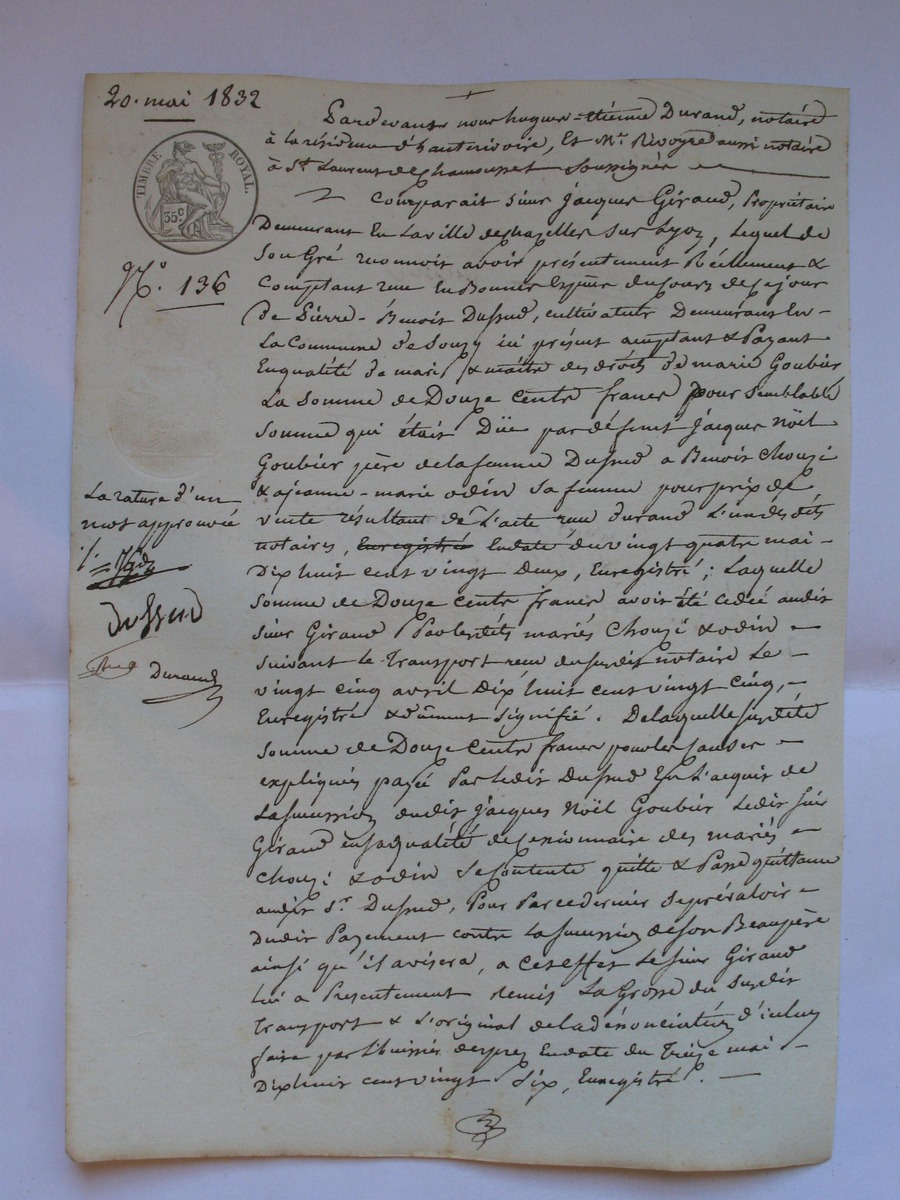 20. mai 1832
TIMBRE ROYAL.
35 c.
N.º 136
Pardevant nous hugues-étienne Durand, notaire
à la résidence d'hauterivoire, Et Mr. Rivoyre aussi notaire
à St. Laurent de Chamousset Soussignés
Comparait sieur jacques Giraud, Propriétaire
Demeurant En la ville de chazelles sur Lyon, Lequel de
Son Gré reconnoit avoir présentement Réellement &
Comptant reçu En Bonnes Espèces du cours de ce jour
De Pierre-Benoit Dussud, cultivateur Demeurant En
La Commune de Souzy ici présent acceptant & Payant
En qualité de mari & maître des droits de marie Goubier
La Somme de Douze Cents francs pour Semblable
Somme qui étais Düe par défunt jacques Nöel
Goubier père de la femme Dussud a Benoit Chouzi
& a jeanne-marie odin Sa femme pour prix de
vente résultant de L'acte reçu durand L'un des dits
notaires, Enregistré En date du vingt quatre mai
Dix huit cent vingt Deux, Enregistré ; Laquelle
Somme de Douze Cents francs avoit été cedée audit
Sieur Giraud Par les dits mariés Chouzi & odin
Suivant Le Transport reçu du susdit notaire Le
vingt cinq avril Dix huit cent vingt Cinq,
Enregistré & dûment Signifié. De laquelle susdite
Somme de Douze Cents francs pour les causes
expliquées payée Par ledit Dussud En L'acquit de
La succession dudit jacques Nöel Goubier Ledit sieur
Giraud en sa qualité de Cessionnaire des mariés
Chouzi & odin Se Contente quitte & Passe quittance
audit Sr. Dussud, Pour Par ce dernier Se prévaloir
Dudit Payement contre La succession de son Beaupère
ainsi qu'il avisera, a cet effet Le sieur Giraud
Lui a Présentement remis La Grosse du Susdit
Transport & L'original de la dénonciation d'icelui
faite par L'huissier En date du Treize mai
Dix huit cent vingt Six, Enregistré.
La rature d'un
mot approuvée
dussud
Durand